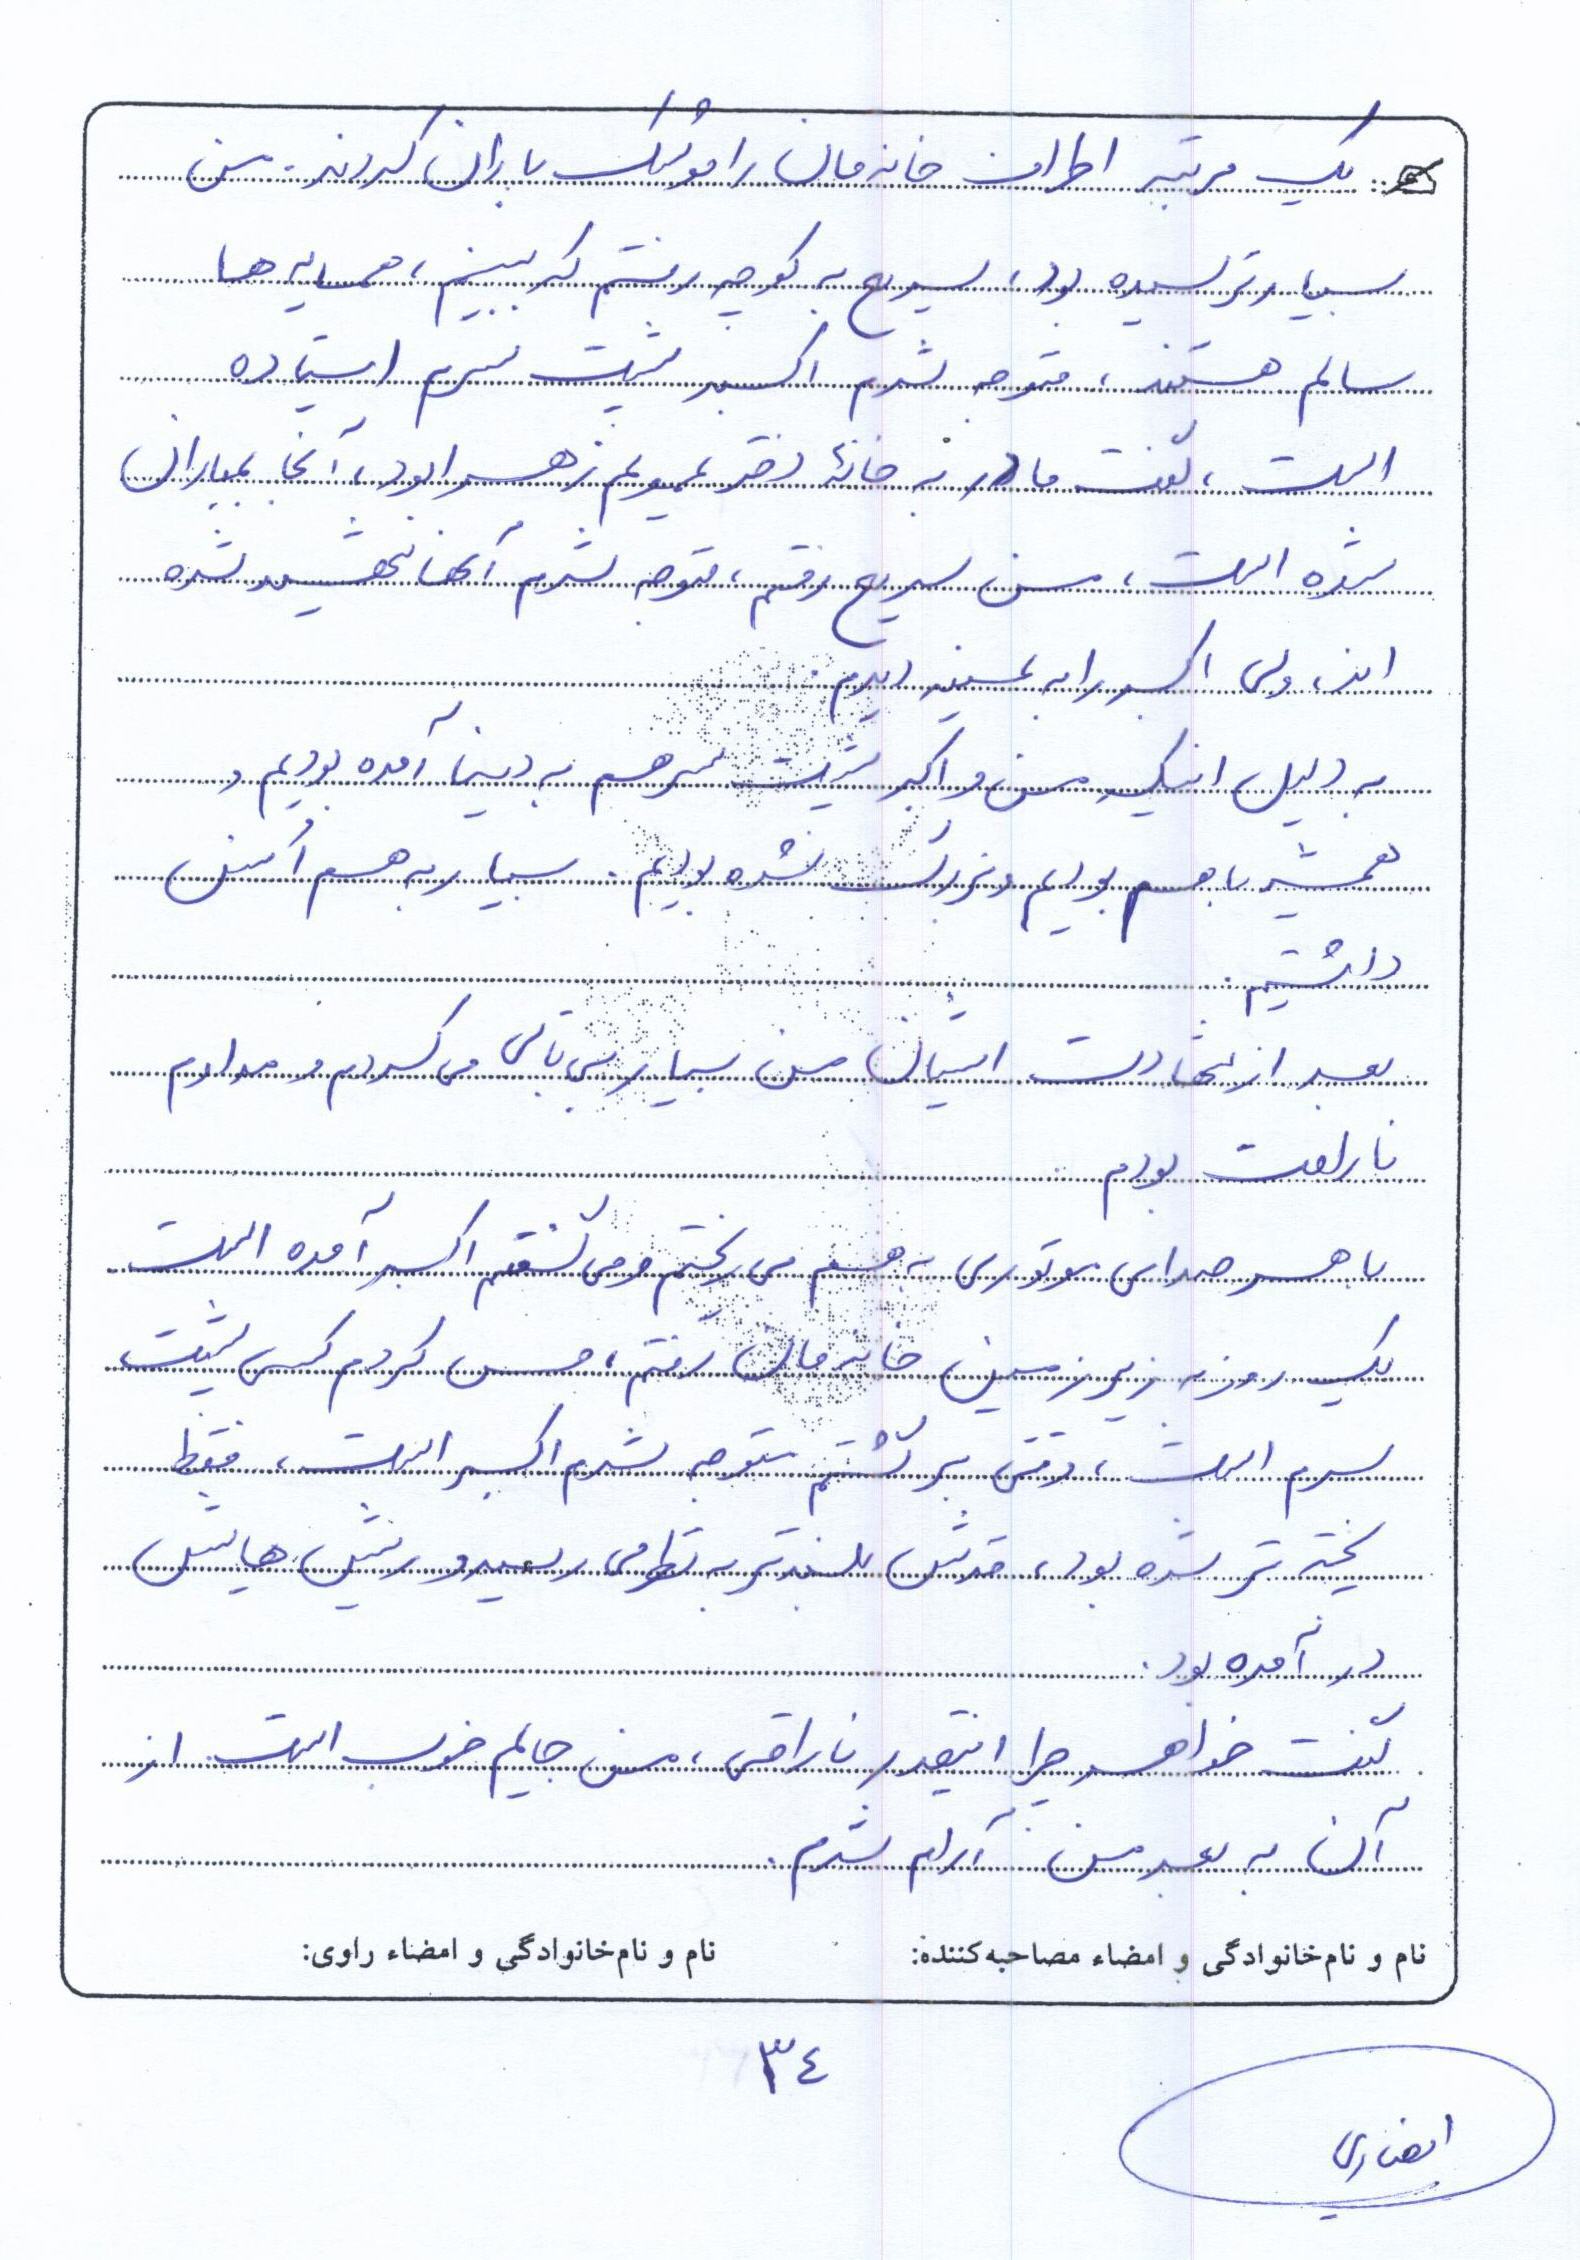 یک مرتبه اطراف خانه مان را موشک باران کردند. من
بسیار ترسیده بود، سریع به کوچه رفتم که ببینم، همسایه ها
سالم هستند، متوجه شدم اکبر پشت سرم ایستاده
است، گفت مادر به خانهٔ دختر عمویم زهرا بود، آنجا بمباران
شده است، من سریع رفتم، متوجه شدم آنها شهید شده
اند، ولی اکبر را به عینه دیدم.
به دلیل اینکه من و اکبر پشت سرهم به دنیا آمده بودیم و
همیشه با هم بودیم و بزرگ شده بودیم. بسیار به هم انس
داشتیم.
بعد از شهادت ایشان من بسیار بی تابی می کردم و مدام
ناراحت بودم
با هر صدای موتوری به هم می ریختم و می گفتم اکبر آمده است
یک روز به زیرزمین خانه مان رفتم، حس کردم کسی پشت
سرم است، وقتی برگشتم متوجه شدم اکبر است، فقط
پخته تر شده بود، قدش بلندتر به نظر می رسید و ریش هایش
در آمده بود.
گفت خواهر چرا اینقدر ناراحتی، من جایم خوب است. از
آن به بعد من آرام شدم.
نام و نام‌خانوادگی و امضاء مصاحبه‌کننده: نام و نام‌خانوادگی و امضاء راوی:
۳٤
انصاری